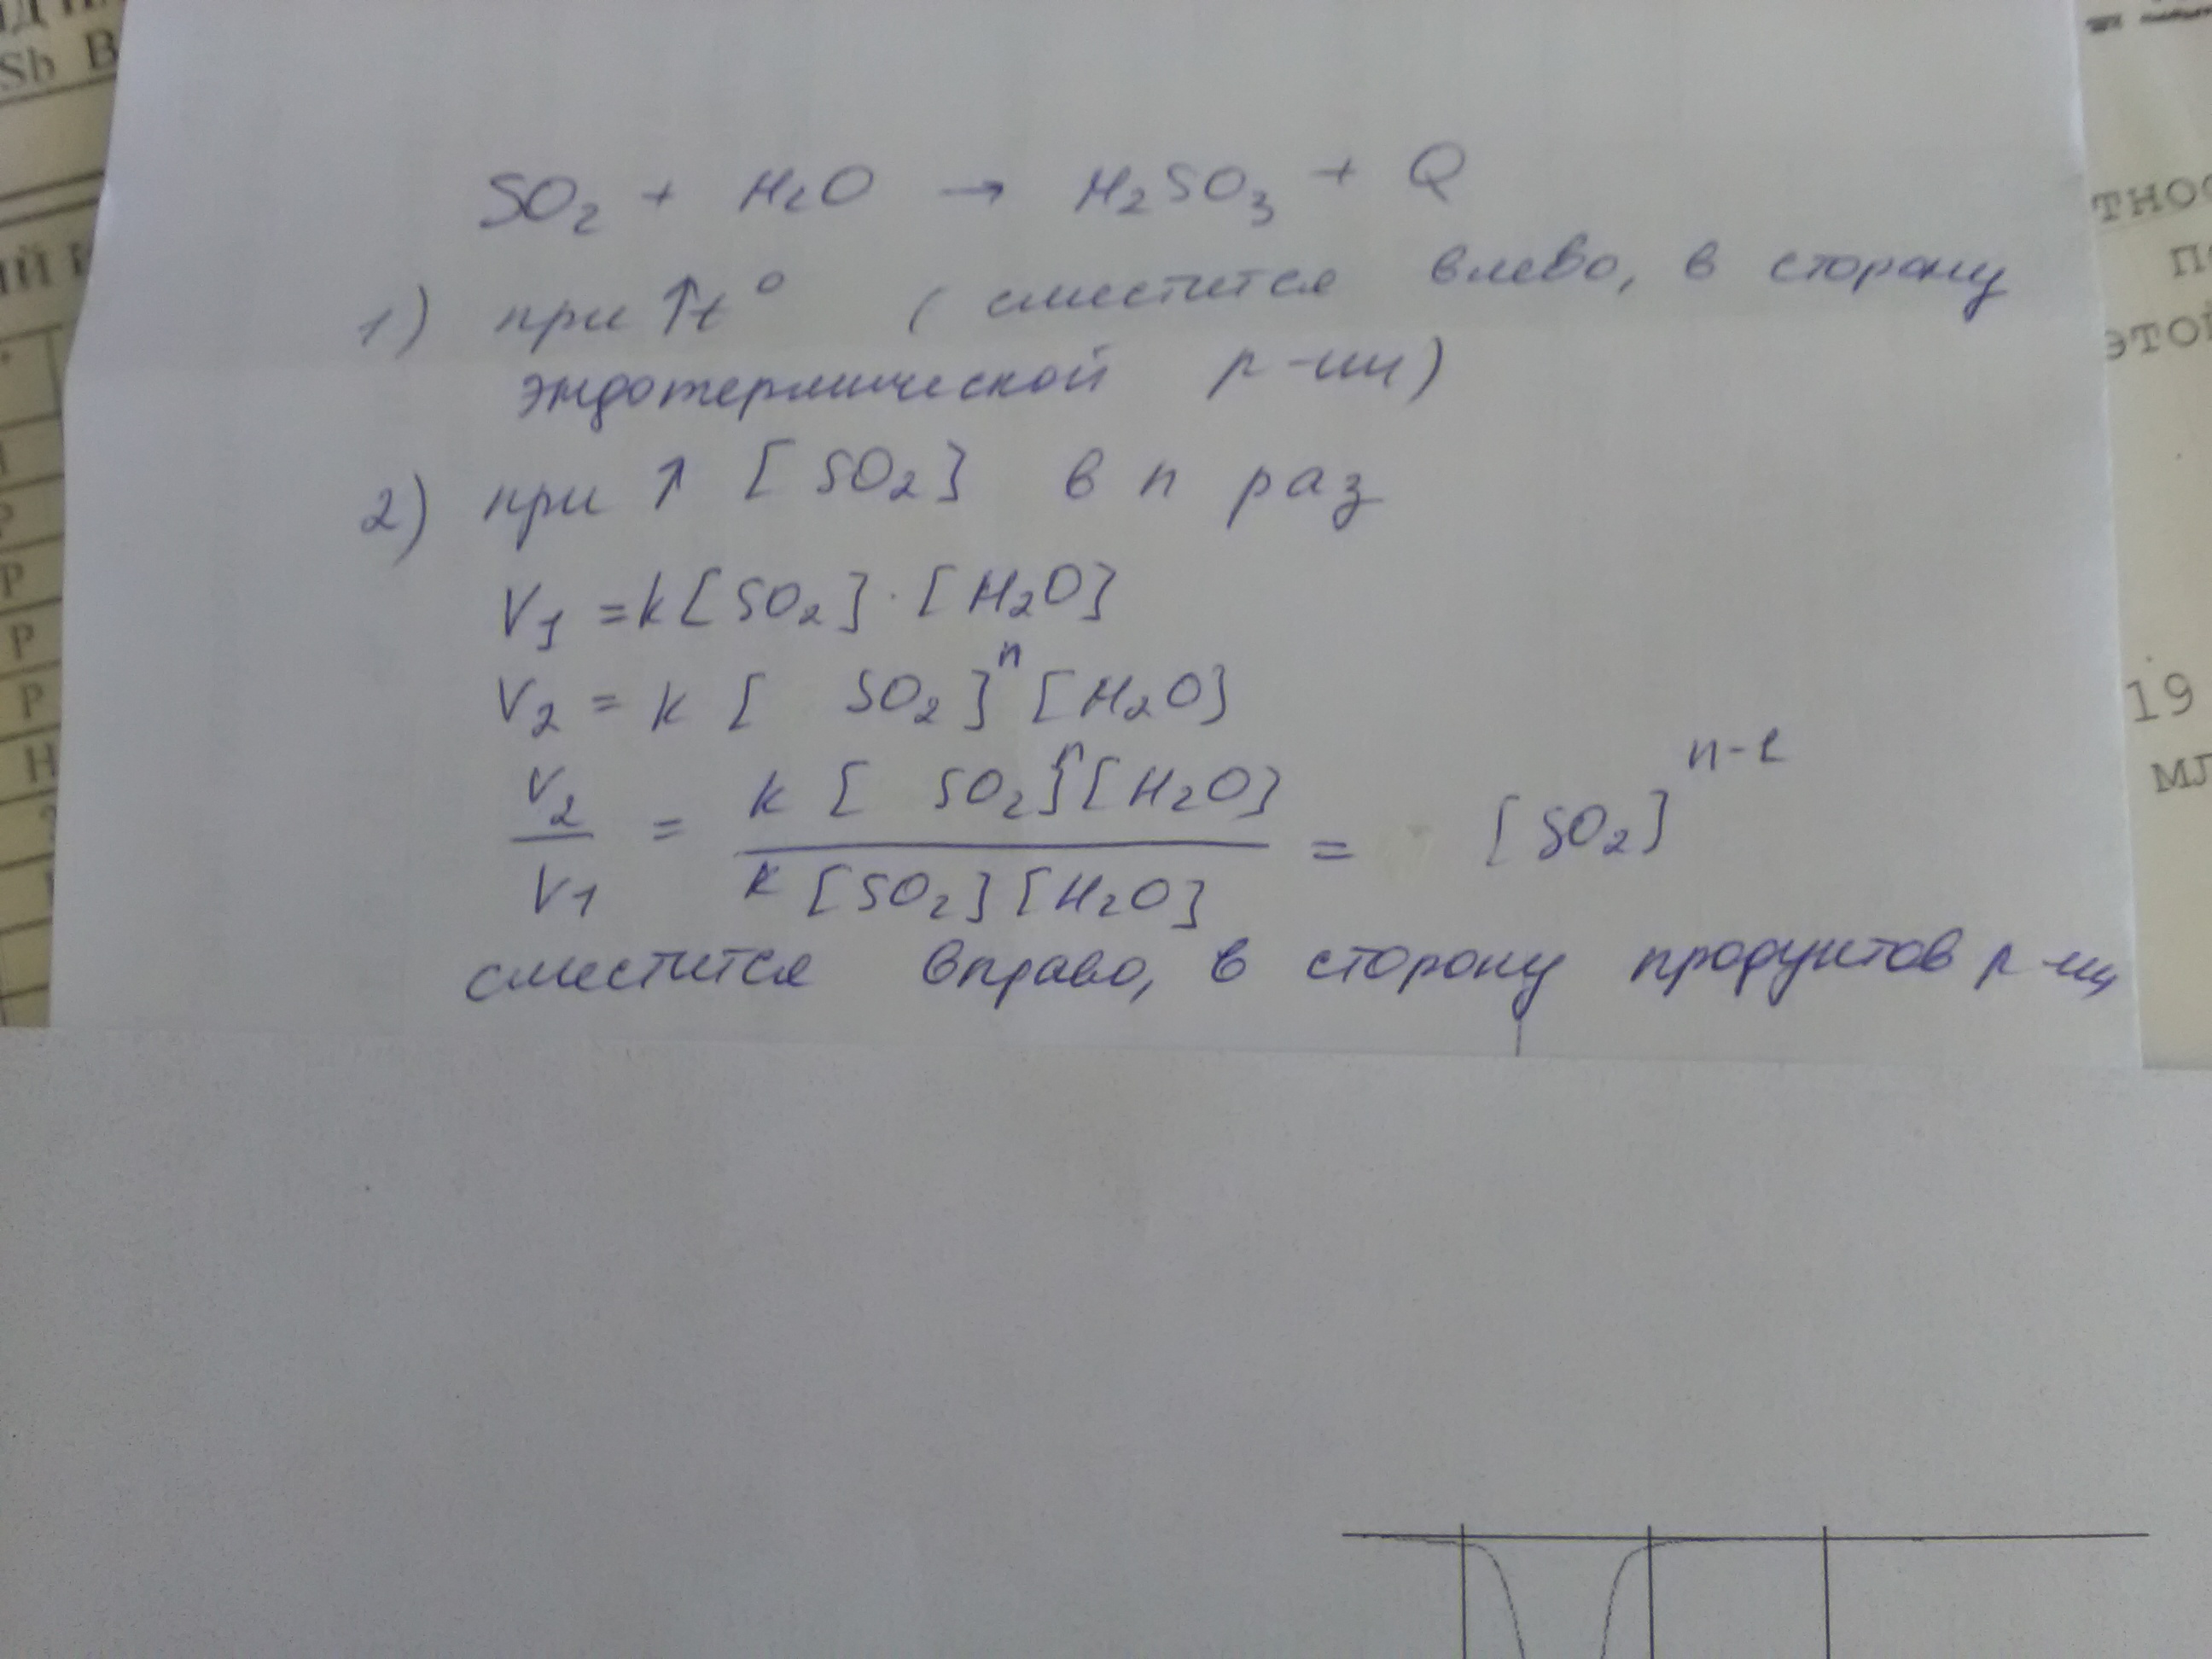 Sb В
тнос
этой
SO₂ + H₂O → H₂SO₃ + Q
1) при ↑t° (сместится влево, в сторону
эндотермической р-ции)
2) при ↑ [SO₂] в n раз
V₁ = k[SO₂]·[H₂O]
V₂ = k [ SO₂]ⁿ [H₂O]
V₂/V₁ = k [ SO₂]ⁿ[H₂O] / k [SO₂][H₂O] = [SO₂]ⁿ⁻¹
сместится вправо, в сторону продуктов р-ции
Р
Р
Р
Н
19
мл